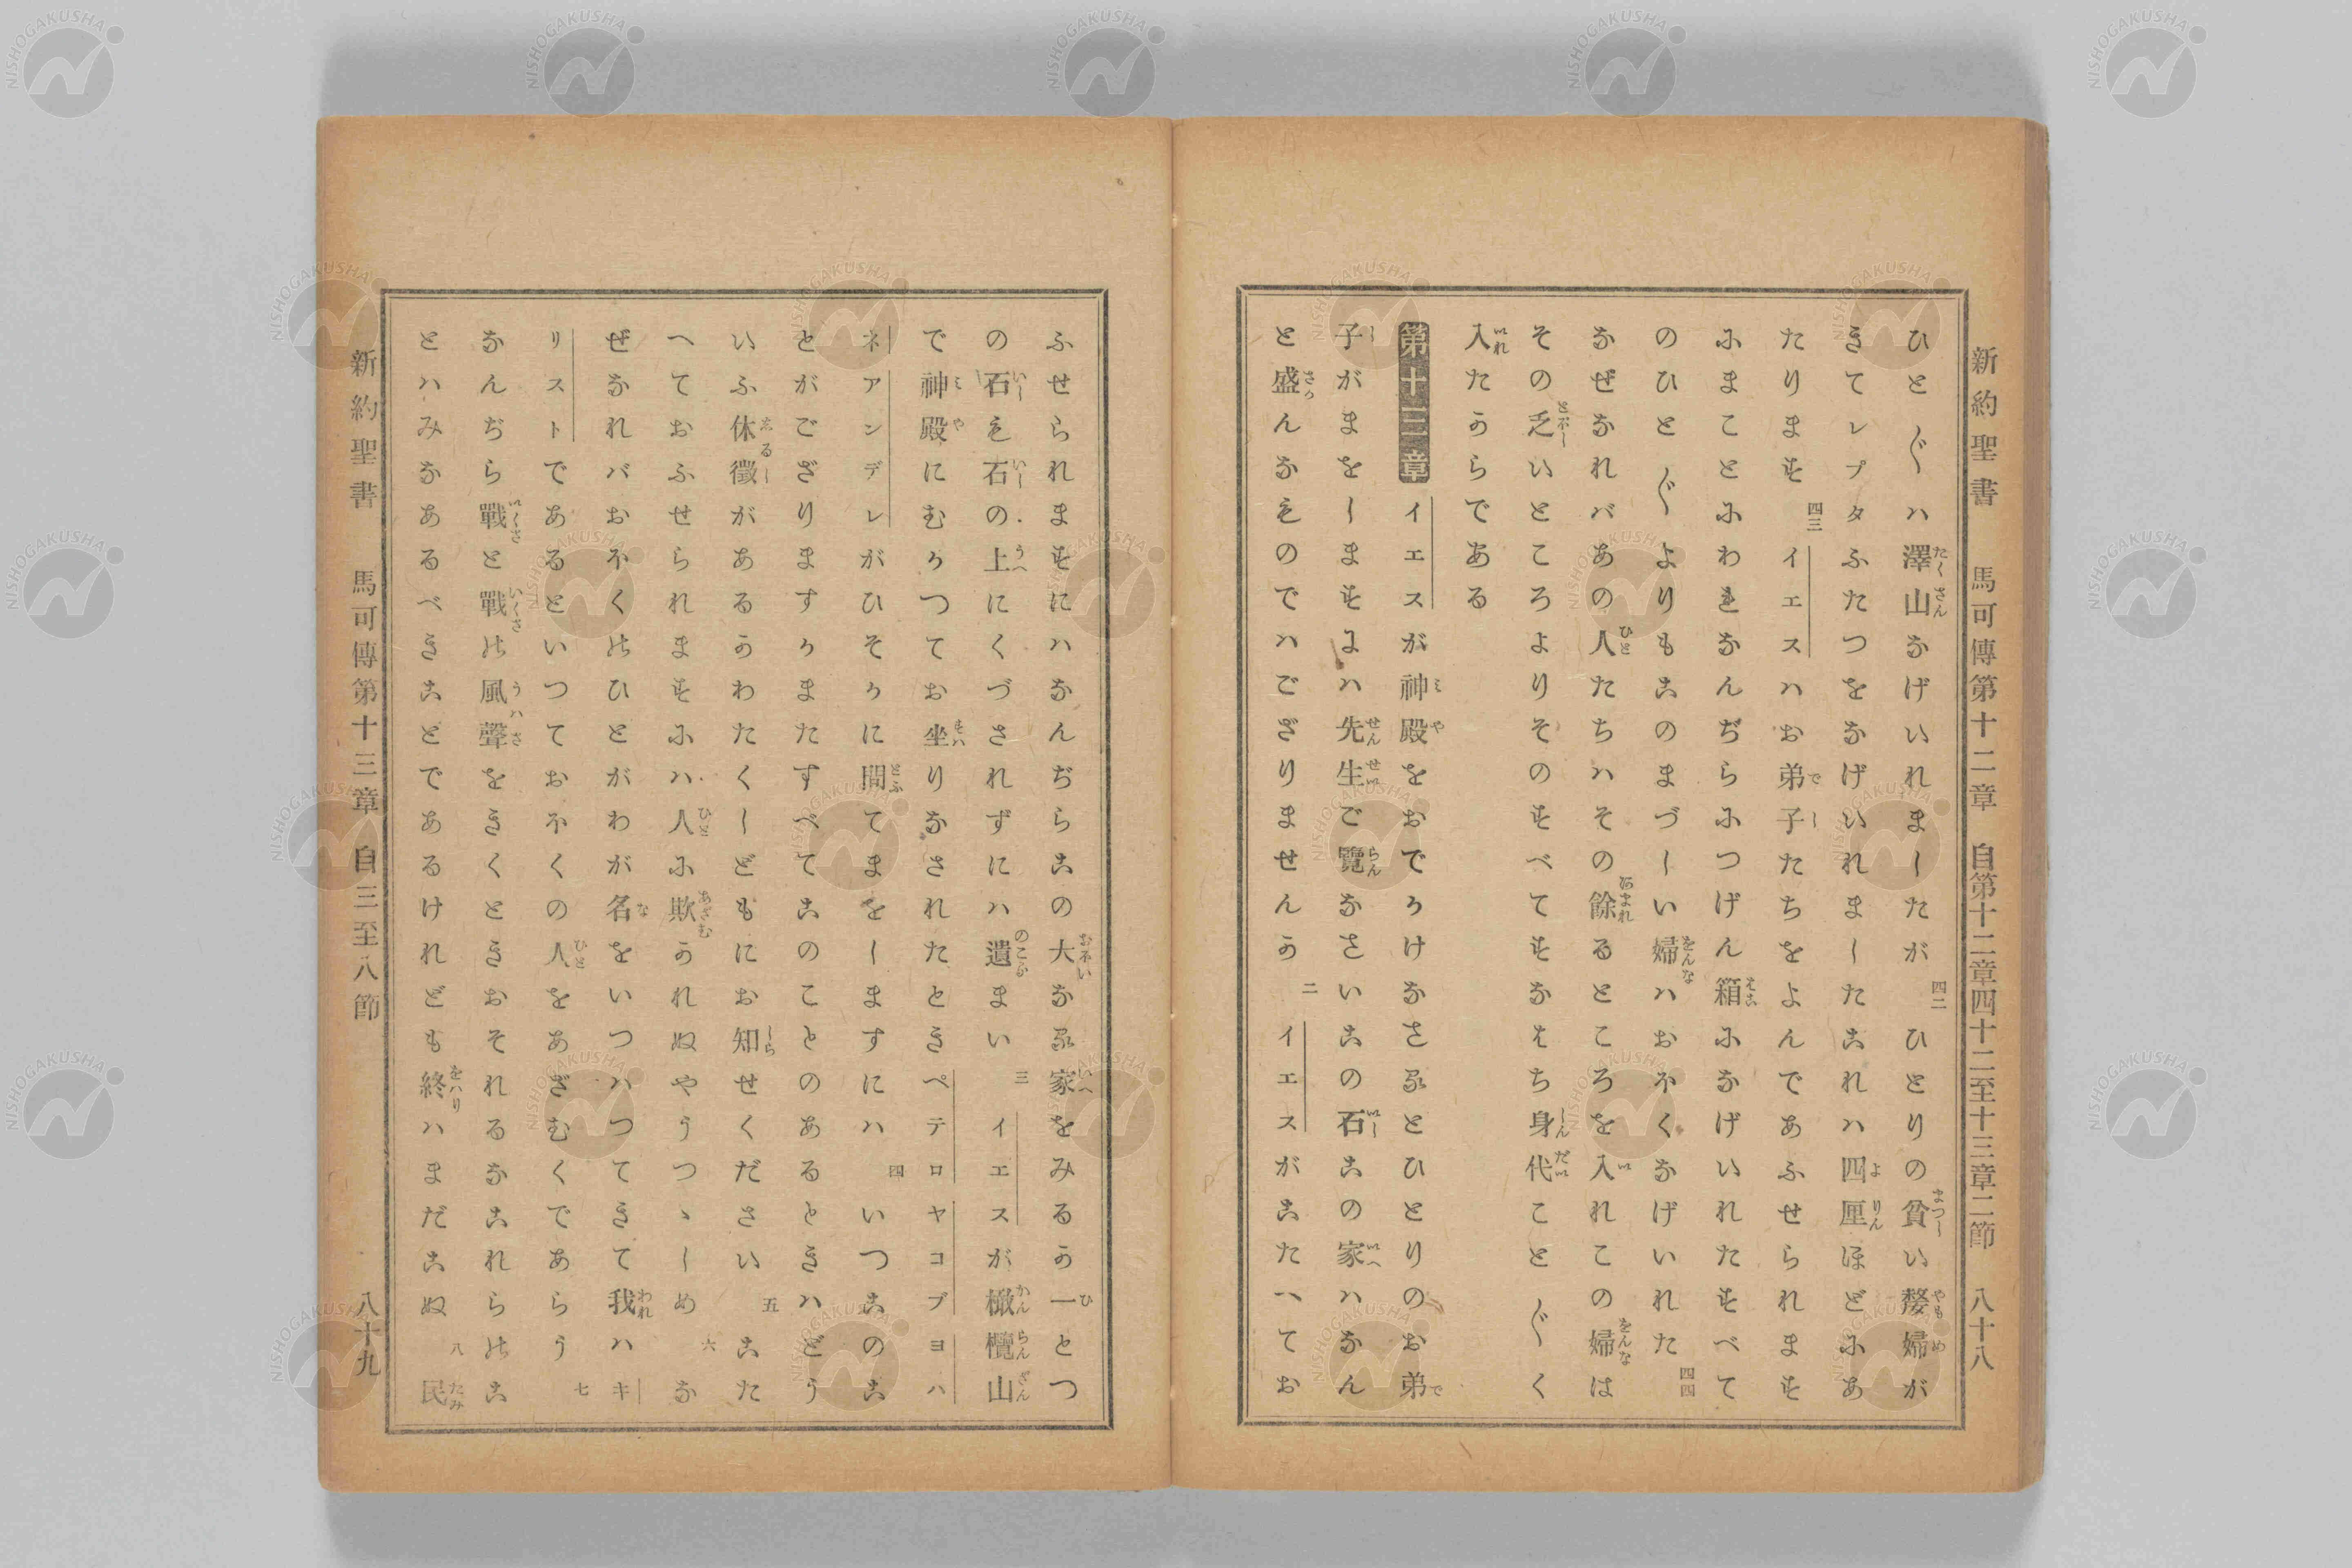 新約聖書 馬可傳第十二章 自第十二章四十二至十三章二節 八十八
ひと〲ハ澤山なげいれましたが 四二 ひとりの貧い嫠婦が
きてレプタふたつをなげいれましたこれハ四厘ほどにあ
たります 四三 イエスハお弟子たちをよんであふせられます
にまことにわれなんぢらにつげん箱になげいれたすべて
のひと〲よりもこのまづしい婦ハおほくなげいれた 四四
なぜなれバあの人たちハその餘るところを入れこの婦は
その乏いところよりそのすべてすなはち身代こと〲く
入たからである
第十三章 イエスが神殿をおでかけなさるとひとりのお弟
子がまをしますにハ先生ご覽なさいこの石この家ハなん
と盛んなものでハござりませんか 二 イエスがこたへてお
ふせられますにハなんぢらこの大なる家をみるか一とつ
の石も石の上にくづされずにハ遺るまい 三 イエスが橄欖山
で神殿にむかつてお坐りなされたときペテロヤコブヨハ
ネアンデレがひそかに問てまをしますにハ 四 いつこのこ
とがござりますかまたすべてこのことのあるときハどう
いふ休徵があるかわたくしどもにお知せください 五 こた
へておふせられますにハ人に欺かれぬやうつゝしめ 六 な
ぜなれバおほくのひとがわが名をいつハつてきて我ハキ
リストであるといつておほくの人をあざむくであらう 七
なんぢら戰と戰の風聲をきくときおそれるなこれらのこ
とハみなあるべきことであるけれども終ハまだこぬ 八 民
新約聖書 馬可傳第十三章 自三至八節 八十九